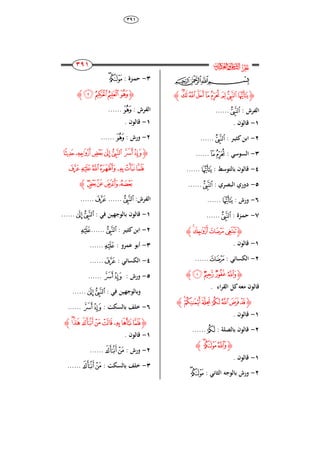 ٣٩١
٣٩١
بِسْمِ اللَّهِ الرَّحْمَٰنِ الرَّحِيمِ
﴿ يَٰٓأَيُّهَا ٱلنَّبِىُّ لِمَ تُحَرِّمُ مَآ أَحَلَّ ٱللَّهُ لَكَ ﴾
الفرش : ٱلنَّبِىُّ ......
١- قالون .
٢- ابن كثير : ٱلنَّبِىُّ ......
٣- السوسي : تُحَرِّمُ مَآ ......
٤- قالون بالتوسط : يَٰٓأَيُّهَا ......
٥- دوري البصري : ٱلنَّبِىُّ ......
٦- ورش : يَٰٓأَيُّهَا ......
٧- حمزة : ٱلنَّبِىُّ ......
﴿ تَبْتَغِى مَرْضَاتَ أَزْوَٰجِكَ ﴾
١- قالون .
٢- الكسائي : مَرْضَاتَ ......
﴿ وَٱللَّهُ غَفُورٌ رَّحِيمٌ ١ ﴾
قالون معه كل القراء .
﴿ قَدْ فَرَضَ ٱللَّهُ لَكُمْ تَحِلَّةَ أَيْمَٰنِكُمْ ﴾
١- قالون .
٢- قالون بالصلة : لَكُمْ ......
﴿ وَٱللَّهُ مَوْلَىٰكُمْ ﴾
١- قالون .
٢- ورش بالوجه الثاني : مَوْلَىٰكُمْ
٣- حمزة : مَوْلَىٰكُمْ
﴿ وَهُوَ ٱلْعَلِيمُ ٱلْحَكِيمُ ٢ ﴾
الفرش : وَهُوَ ......
١- قالون .
٢- ورش : وَهُوَ ......
﴿ وَإِذْ أَسَرَّ ٱلنَّبِىُّ إِلَىٰ بَعْضِ أَزْوَٰجِهِۦ حَدِيثًا
فَلَمَّا نَبَّأَتْ بِهِۦ وَأَظْهَرَهُ ٱللَّهُ عَلَيْهِ عَرَّفَ
بَعْضَهُۥ وَأَعْرَضَ عَنۢ بَعْضٍ ﴾
الفرش: ٱلنَّبِىُّ ...... عَرَّفَ ......
١- قالون بالوجهين في : ٱلنَّبِىُّ إِلَىٰ ......
٢- ابن كثير : ٱلنَّبِىُّ ...... عَلَيْهِ
٣- ابو عمرو : عَلَيْهِ ......
٤- الكسائي : عَرَّفَ ......
٥- ورش : وَإِذْ أَسَرَّ ......
وبالوجهين في : ٱلنَّبِىُّ إِلَىٰ ......
٦- خلف بالسكت : وَإِذْ أَسَرَّ ......
﴿ فَلَمَّا نَبَّأَهَا بِهِۦ قَالَتْ مَنْ أَنۢبَأَكَ هَٰذَا ﴾
١- قالون .
٢- ورش : مَنْ أَنۢبَأَكَ ......
٣- خلف بالسكت : مَنْ أَنۢبَأَكَ ......